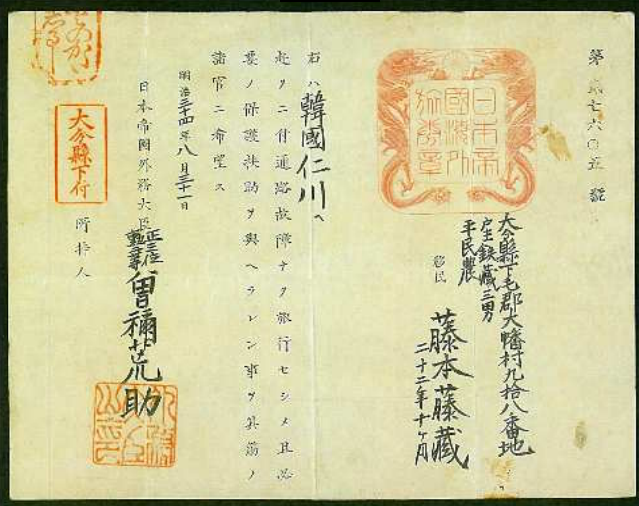 第弐七六〇五號
日本帝
國海外
旅券章
大分縣下毛郡大幡村九拾八番地
戸主鉄藏三男
平民農
移民
藤本藤藏
二十二年十ヶ月
右ハ韓國仁川ヘ
赴クニ付通路故障ナク旅行セシメ且必
要ノ保護扶助ヲ與ヘラレン事ヲ其筋ノ
諸官ニ希望ス
明治三十四年八月三十一日
日本帝國外務大臣
正三位
曾禰荒助
大分縣下付
所持人